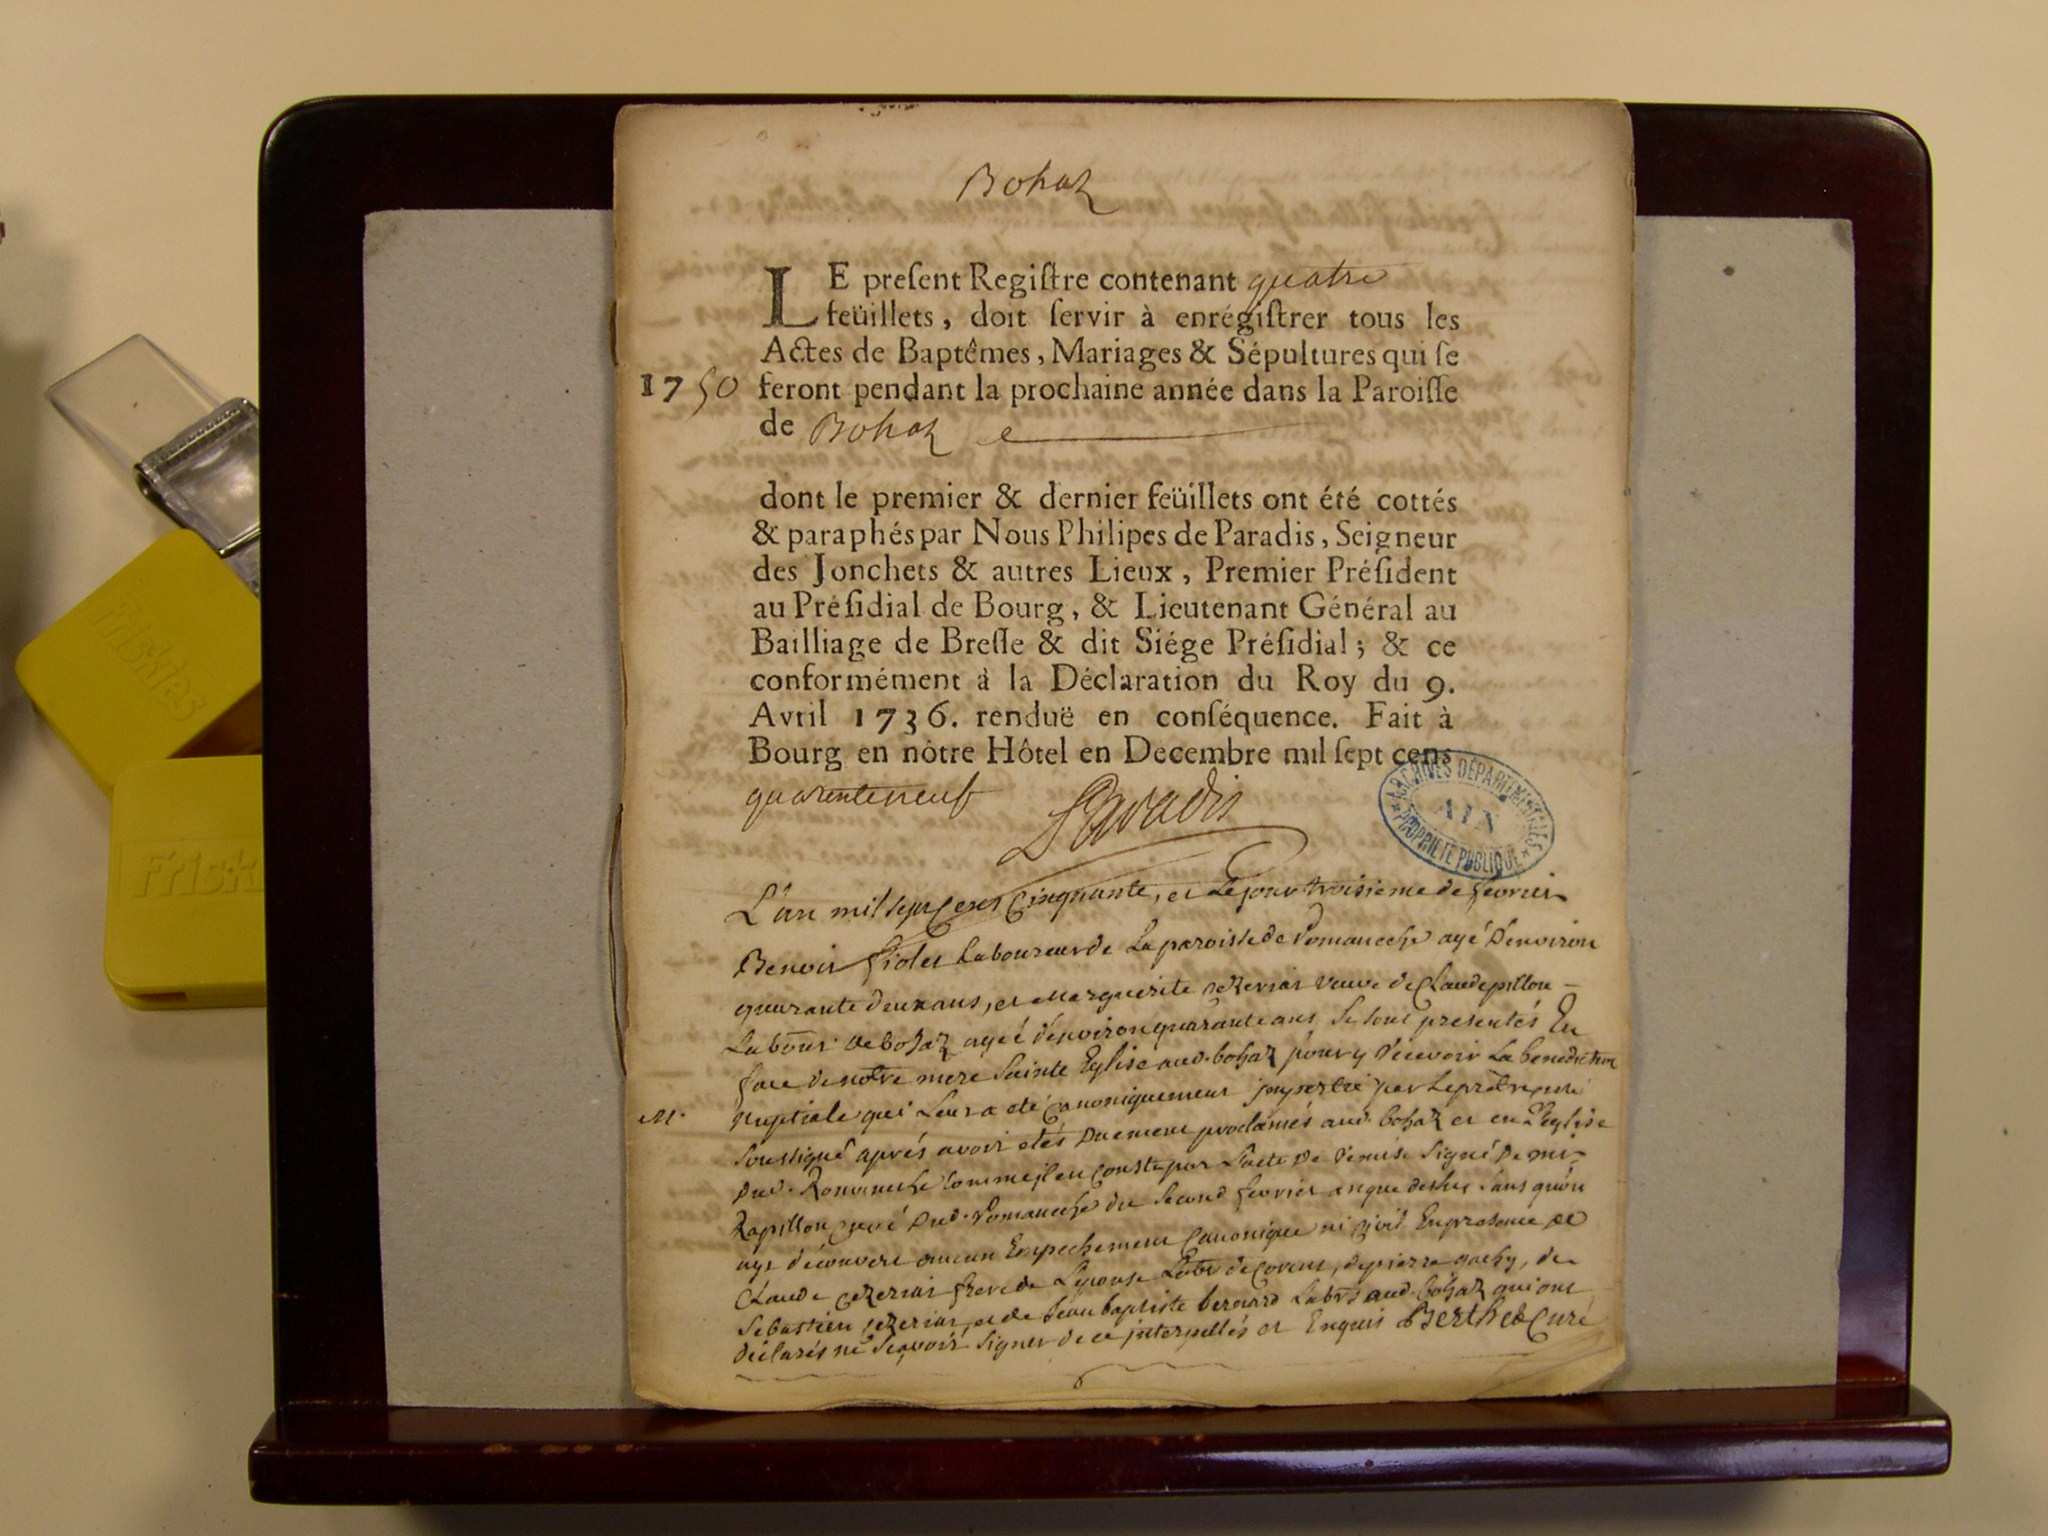 Bohaz
LE preſent Regiſtre contenant quatre
feüillets, doit ſervir à enrégiſtrer tous les
Actes de Baptêmes, Mariages & Sépultures qui ſe
1750 feront pendant la prochaine année dans la Paroiſſe
de Bohaz
dont le premier & dernier feüillets ont été cottés
& paraphés par Nous Philipes de Paradis, Seigneur
des Jonchets & autres Lieux, Premier Préſident
au Préſidial de Bourg, & Lieutenant Général au
Bailliage de Breſſe & dit Siége Préſidial; & ce
conformément à la Déclaration du Roy du 9.
Avril 1736. renduë en conſéquence. Fait à
Bourg en nôtre Hôtel en Decembre mil sept cens
quaranteneuf Paradis
ARCHIVES DÉPARTEMENTALES
AIN
PROPRIÉTÉ PUBLIQUE
L'an mil sept cens cinquante, et le jour troisieme de fevrier
Benoit laboureur de la paroisse de Romaneche agé d'environ
quarante deux ans, et Marguerite veuve de Claude pillon
de bohaz agée d'environ quarante ans se sont presentés En
face de notre mere Sainte Eglise aud. bohaz pour y recevoir La benediction
M. Nuptiale qui Leur a eté Canoniquement impertie par Le prêtre curé
soussigné aprés avoir etés Duement proclamés aud. bohaz et en L'eglise
Dud. Romaneche comme il en conste par L'acte De remise signé De mr
curé Dud. Romaneche du second fevrier an que dessus sans qu'on
aye découvert aucun Empechement Canonique ni civil En presence de
Claude frere de L'epouse de pierre de
Sebastien et de Jean baptiste bernard aud. bohaz qui ont
déclarés ne scavoir signer de ce interpellés et Enquis Berthet Curé
Friskies
Friski